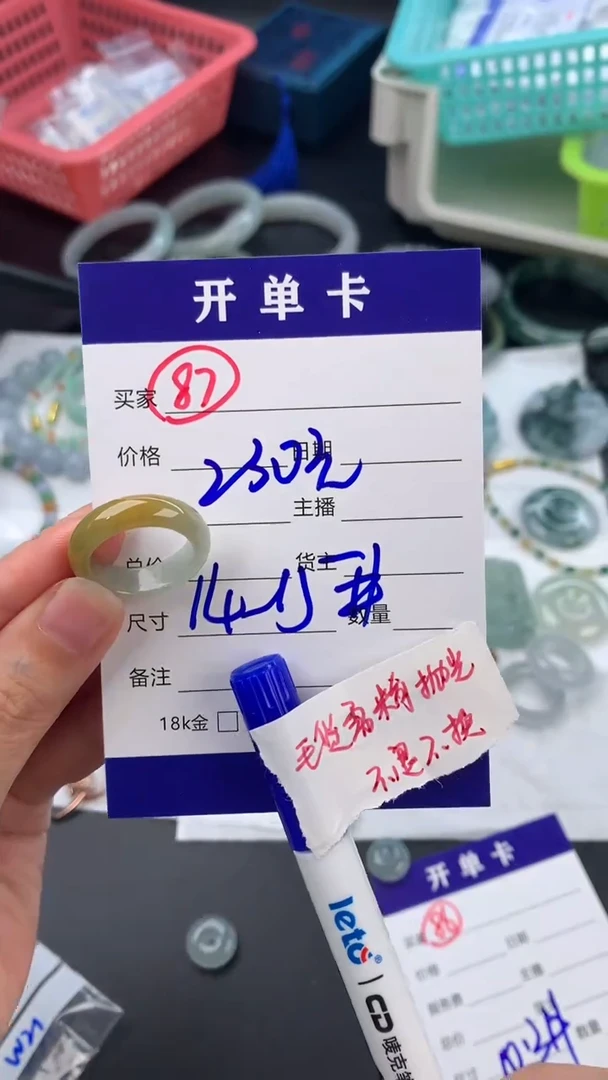 开单卡
买家 87
价格 250元 日期
主播
总价 货主
尺寸 14.1 数量
备注
18k金
毛货需精抛光
不退不换
leto® CD 唛克笔
开单卡
买家 86
价格 日期
主播
总价
尺寸 数量